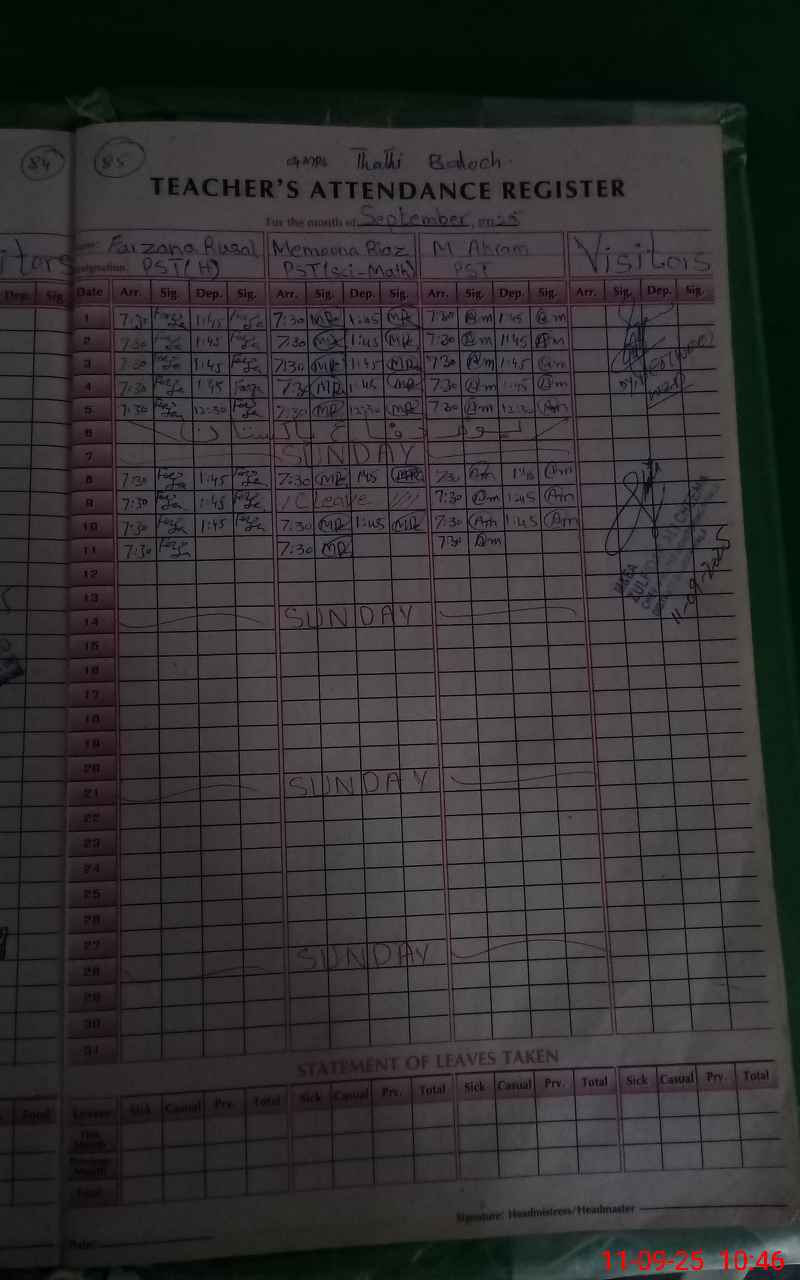 84
85
GMPS Thathi Baloch
TEACHER'S ATTENDANCE REGISTER
For the month of September, 2025
Name: Farzana Rusal Memoona Riaz M Akram Visitors
Designation: PST(H) PST(Sci-Math) PST
Date Arr. Sig. Dep. Sig. Arr. Sig. Dep. Sig. Arr. Sig. Dep. Sig. Arr. Sig. Dep. Sig.
1 7:30 1:45 7:30 MR 1:45 MR 7:30 Am 1:45 Am
2 7:30 1:45 7:30 MR 1:45 MR 7:30 Am 1:45 Am
3 7:30 1:45 7:30 MR 1:45 MR 7:30 Am 1:45 Am
4 7:30 1:45 7:30 MR 1:45 MR 7:30 Am 1:45 Am
5 7:30 12:30 7:30 MR 12:30 MR 7:30 Am 12:30 Am
6 یوم دفاع پاکستان
7 SUNDAY
8 7:30 1:45 7:30 MR 1:45 MR 7:30 Am 1:45 Am
9 7:30 1:45 C Leave 7:30 Am 1:45 Am
10 7:30 1:45 7:30 MR 1:45 MR 7:30 Am 1:45 Am
11 7:30 7:30 MR 7:30 Am
11-09-2025
12
13
14 SUNDAY
15
16
17
18
19
20
21 SUNDAY
22
23
24
25
26
27
28 SUNDAY
29
30
31
STATEMENT OF LEAVES TAKEN
Leaves Sick Casual Prv. Total Sick Casual Prv. Total Sick Casual Prv. Total Sick Casual Prv. Total
This Month
Previous Month
Total
Signature: Headmistress/Headmaster
Date:
11-09-25 10:46